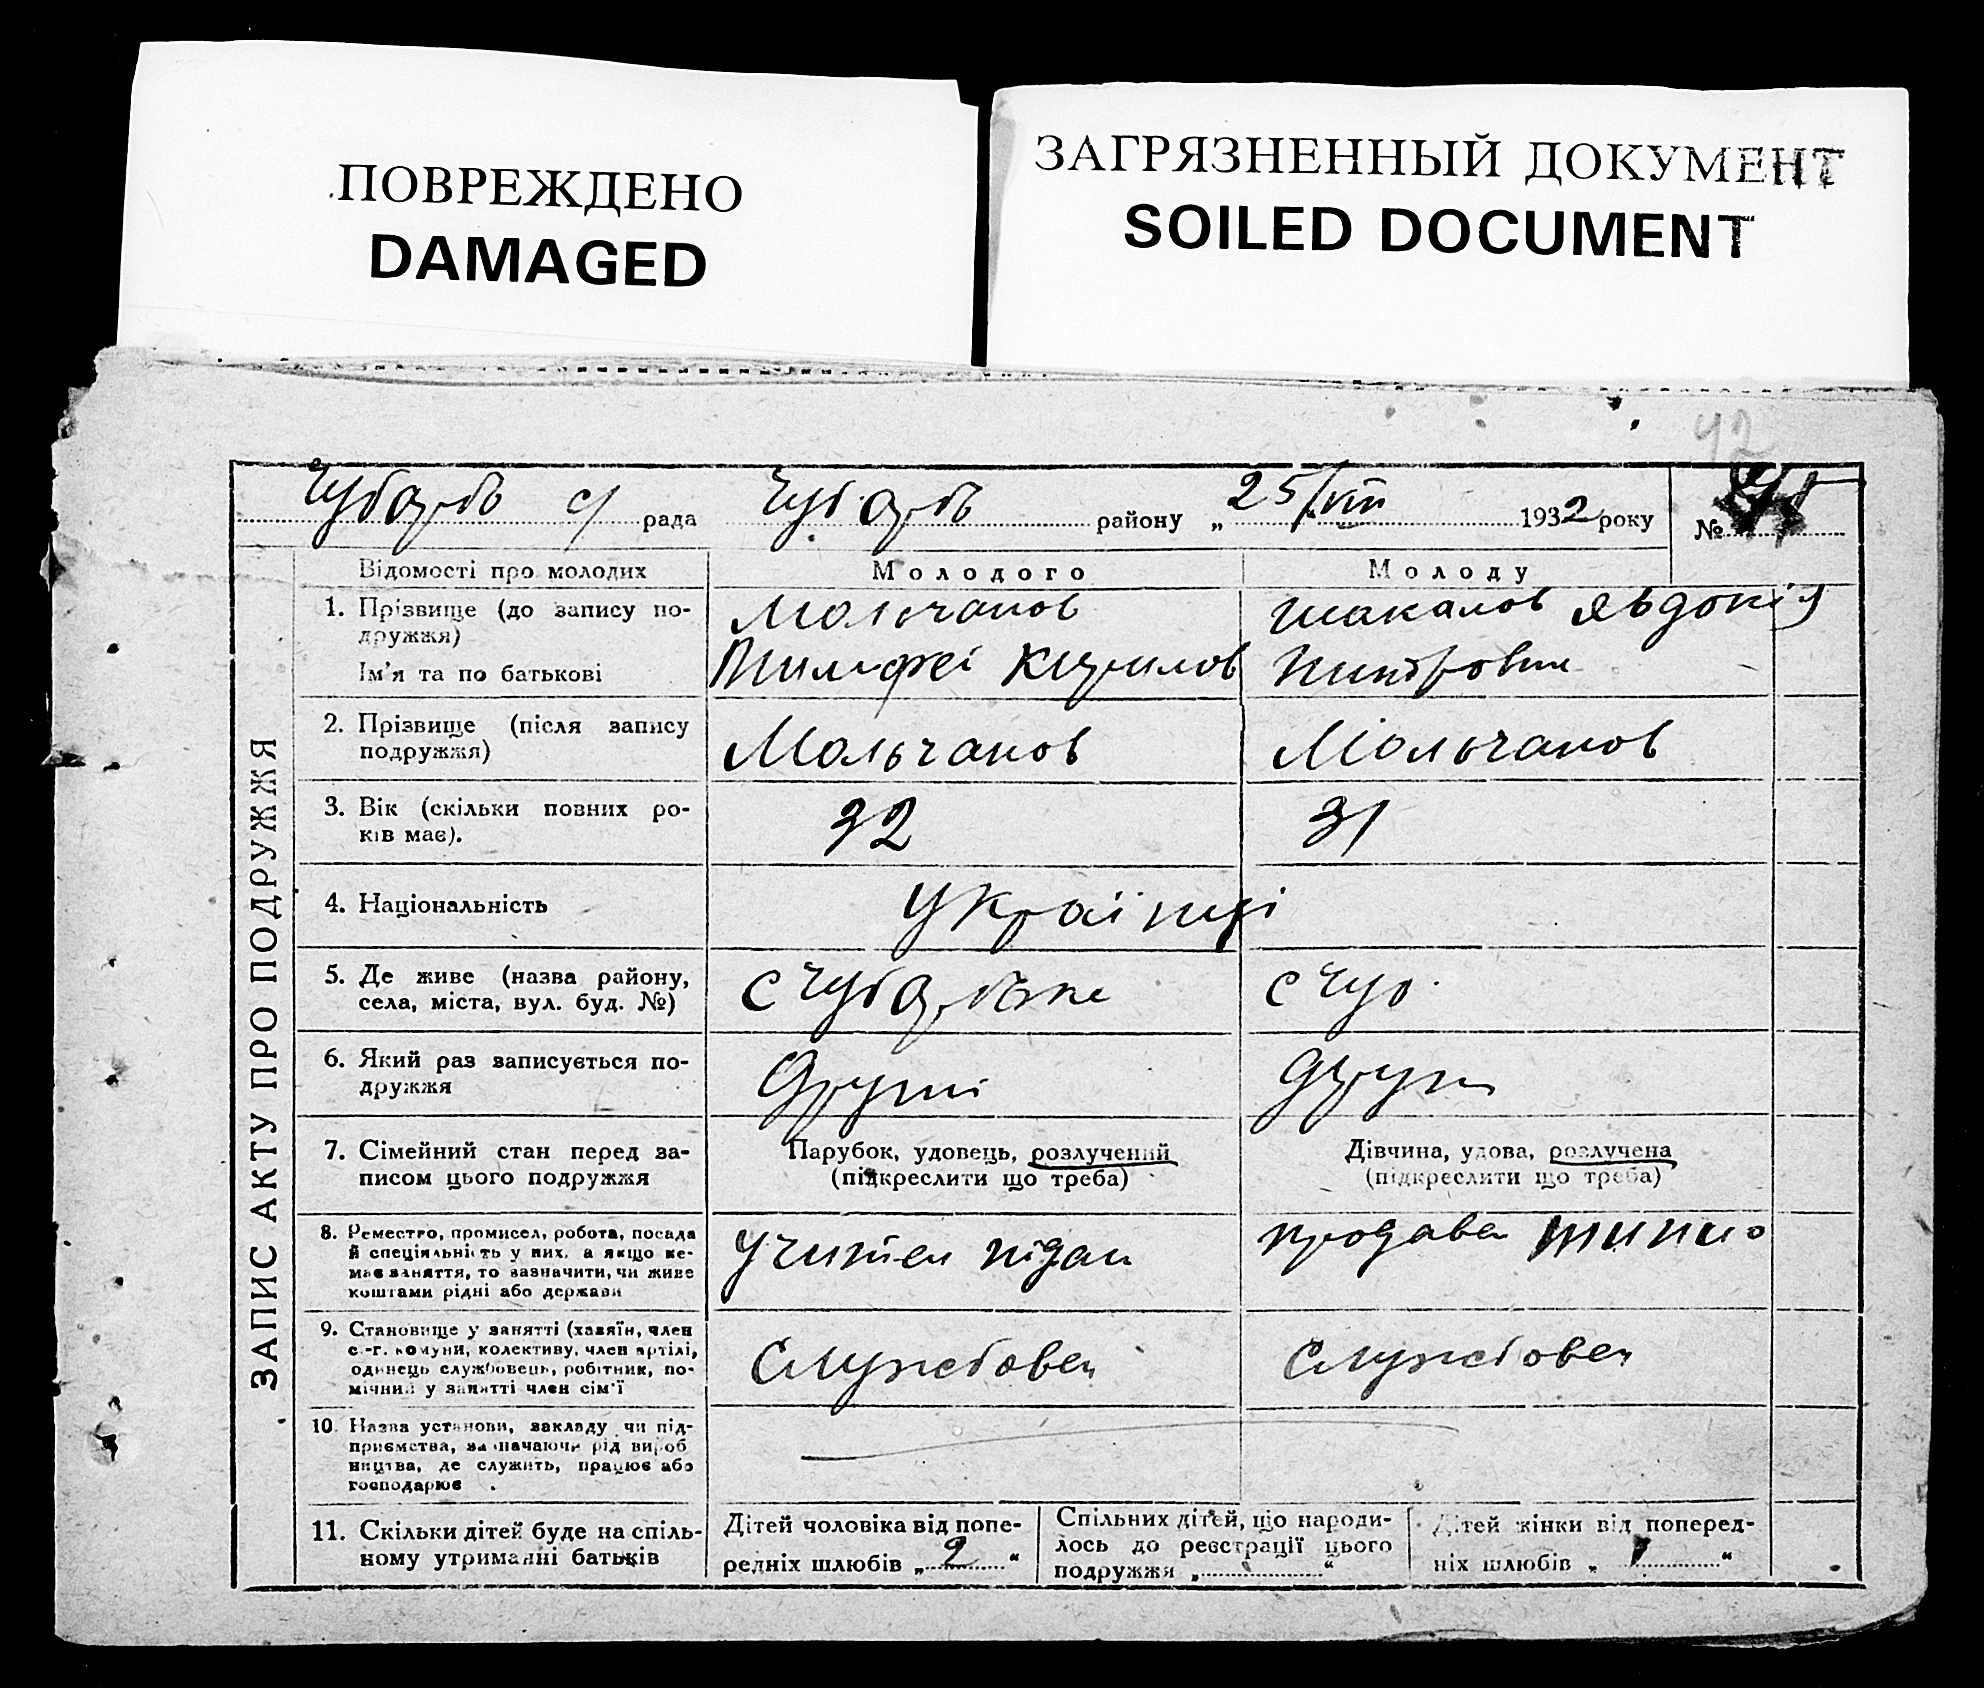 ПОВРЕЖДЕНО
DAMAGED
ЗАГРЯЗНЕННЫЙ ДОКУМЕНТ
SOILED DOCUMENT
42
Чубарів с/ рада Чубарів району „ 25/VIII 1932 року №
ЗАПИС АКТУ ПРО ПОДРУЖЖЯ
Відомості про молодих Молодого Молоду
1. Прізвище (до запису по-
дружжя)
Мольчанов Шакалов Явдокія
Ім'я та по батькові Тимофеі Кирилов
2. Прізвище (після запису
подружжя)
Мольчанов Мольчанов
3. Вік (скільки повних ро-
ків має).
32 31
4. Національність Українці
5. Де живе (назва району,
села, міста, вул. буд. №)
с с Чуб
6. Який раз записується по-
дружжя
Другиі
7. Сімейний стан перед за-
писом цього подружжя
Парубок, удовець, розлучений
(підкреслити що треба)
Дівчина, удова, розлучена
(підкреслити що треба)
8. Реместро, промисел, робота, посада
й спеціяльність у них, а якщо не-
має заняття, то зазначити, чи живе
коштами рідні або держави
Учител продавец
9. Становище у занятті (хазяїн, член
с.-г. комуни, колективу, член артілі,
одинець службовець, робітник, по-
мічний у занятті член сім'ї
Службовец Службовец
10. Назва установи, закладу чи під-
приємства, зазначаючи рід вироб
ництва, де служить, працює або
господарює .
11. Скільки дітей буде на спіль-
ному утриманні батьків
Дітей чоловіка від попе-
редніх шлюбів „ 2 “
Спільних дітей, що народи-
лось до реєстрації цього
подружжя „ “
Дітей жінки від поперед-
ніх шлюбів „ 1 “